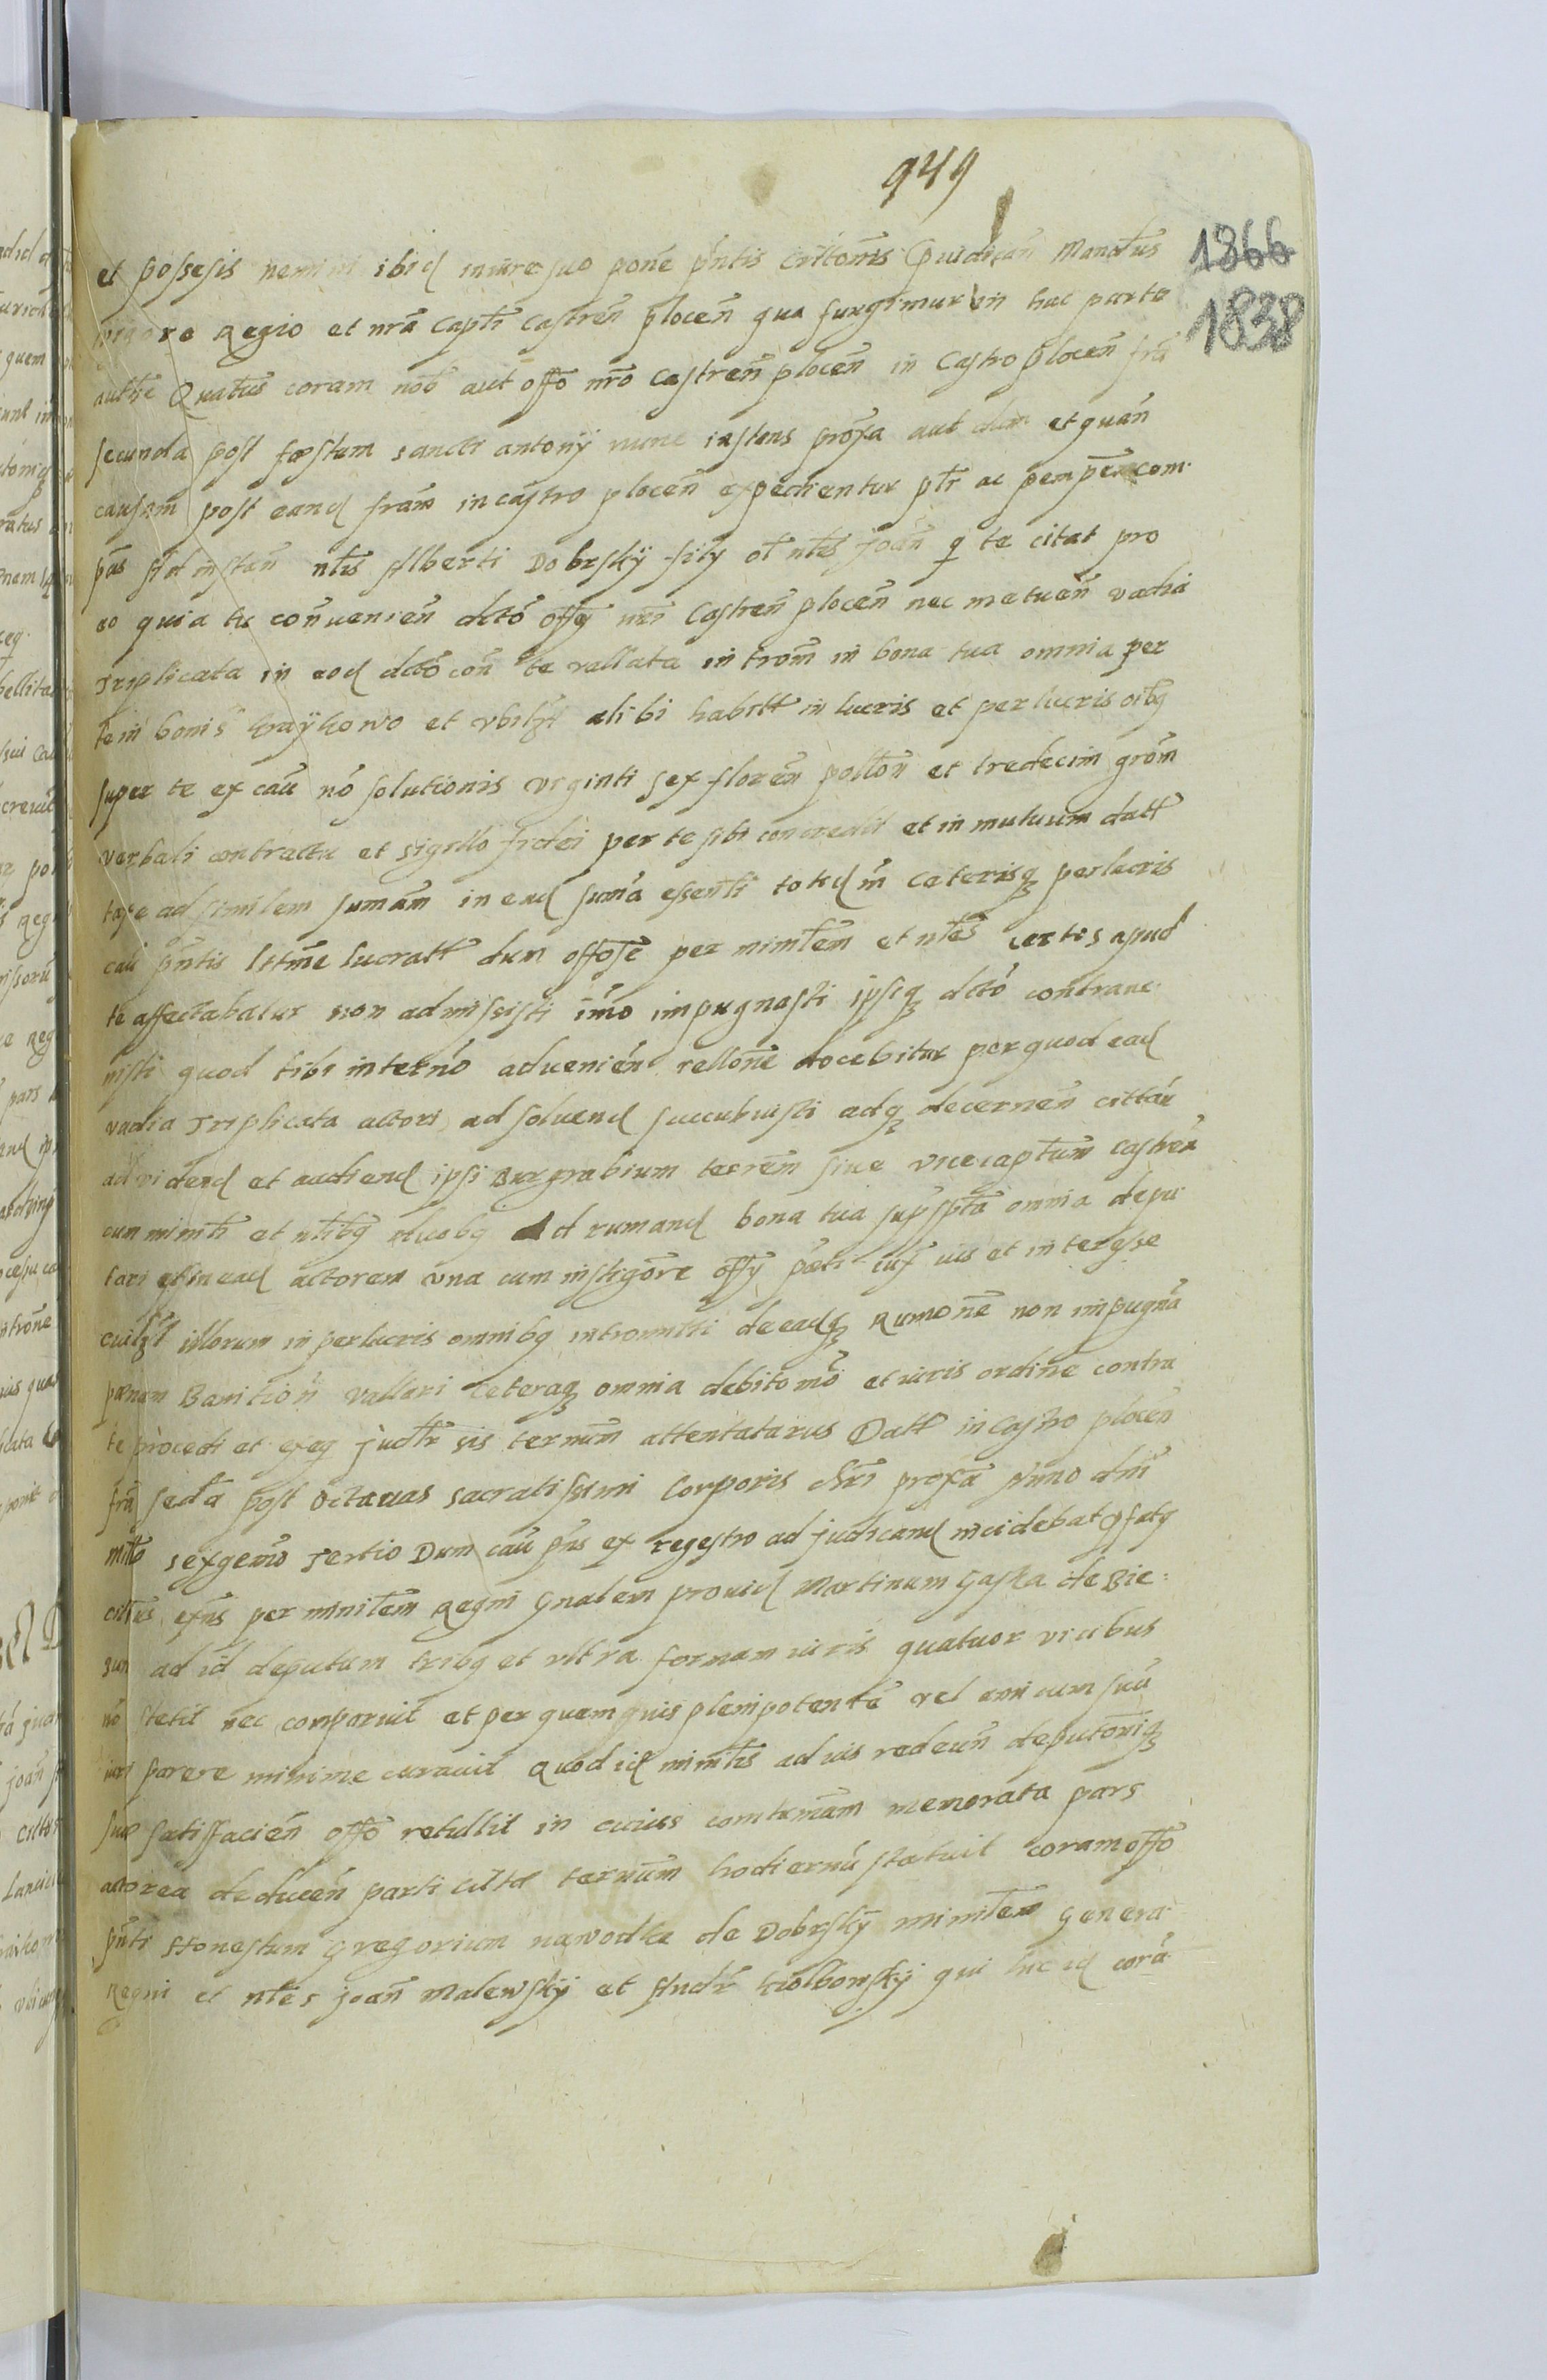 949
1866
1838
et possesis nemini ibid in iure suo pone pntis cittonis Mandtus
vigore Regio et nra Capti Castren plocen qua fungimur in hac parte
autte Quatus coram nob aut offo nro Castren plocen in Castro plocen fra
secunda post fæstum sancti antonÿ nunc instans proxa aut dum et quan
causam post eand fram in castro plocen expedientur ptr ac pemper com
pas Ad instan nlis Alberti Dobrskÿ filÿ ol nlis Joan q te citat pro
eo quia tu conuenien dcto offÿ nri Castren plocen nec metuen vadia
Triplicata in eod dcto con te vallata introm in bona tua omnia per
te in bonis kraÿkowo et vbilzt alibi habitt in lucris et perlucris oibq
super te ex cau no solutionis viginti sex floren pollon et tredecim grom
verbali contractu et sigillo fidei per te sibi concredit et in mutuum datt
taxe ad similem sumam in ead suma essenti totid in ceterisq perlucris
cau pntis littme lucratt dum offose per mintem et nles certis apud
te affectabatur non admissisti imo impugnasti ipsiq dcto contraue
nisti quod tibi in termo aduenien rellone docebitur per quod ead
vadia Triplicata actori ad soluend succubuisti adq decernen cittar
ad vidend et audiend ipsi Burgrabium terrem siue vicecaptum castren
cum minti et nlibq duobq Ad rumand bona tua supspta omnia depu
tari et in ead actorem vna cum instigore offÿ pati cux uis et interesse
cuilzt illorum in perlucris omnibq intromitti de eadq Rumone non impugna
pænam Banition vallari ceteraq omnia debito mo et iuris ordine contra
te procedi et exeq judtr sis ternum attentaturus Datt in Castro plocen
fra secda post octauas sacratissimi Corporis chri proxa Anno dni
millo sexgemo Tertio Dum cau pns ex regestro ad judicand incidebat pfatq
cittus exns per mintem Regni Gnalem prouid Martinum Gaska de Bie=
zun ad id deputum tribq et vltra formam iuris quatuor vicibus
no stetit nec comparuit et per quemquis plenipotente vel amicum suu
iuri parere minime curauit Quod id mintis ad uis redeun deputoniq
suæ satisfacien offo retullit in cuius contumam memorata pars
actorea deducen parti cittæ ternum hodiernu statuit coram offo
pnti Honestum Gregorium nawodka de Dobrskÿ mintem Genera
Regni et nles Joan Malewskÿ et Andr kiolbowskÿ qui hic id cora